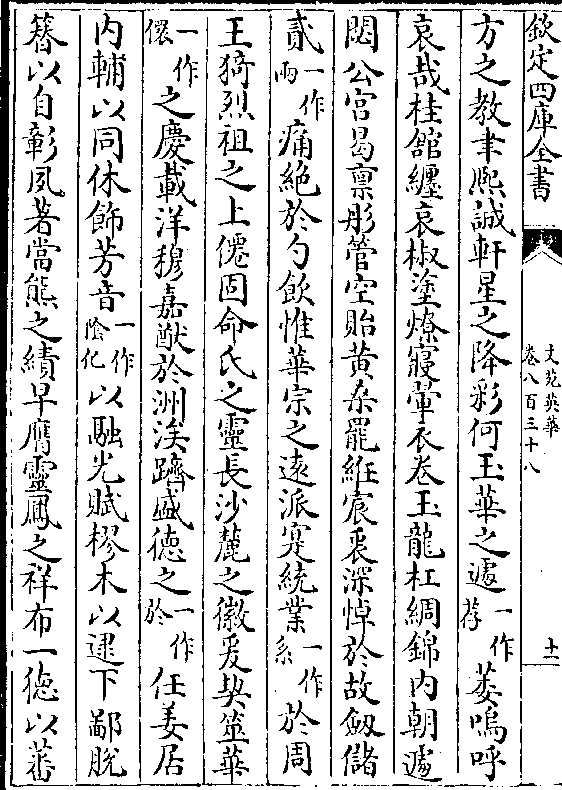 欽定四庫全書
文苑英華
卷八百三十八
十一
方之教聿熙誠軒星之降彩何玉華之遽一作荐萎嗚呼
哀哉桂舘纏哀椒塗燎寢翬衣卷玉龍杠綢錦内朝遽
閟公宫曷禀彤管空貽黄桑罷絍宸衷深悼於故劒儲
貳一作兩痛絶於勺飲惟華宗之逺派寔統業一作系於周
王猗烈祖之上僊固命氏之靈長沙麓之徽爰契筮華
一作儇之慶載洋穆嘉猷於洲涘躋盛徳之一作於任姜居
内輔以同休飾芳音一作隂化以融光賦樛木以逮下鄙脱
簪以自彰夙著當熊之績早膺靈鳳之祥布一徳以蕃